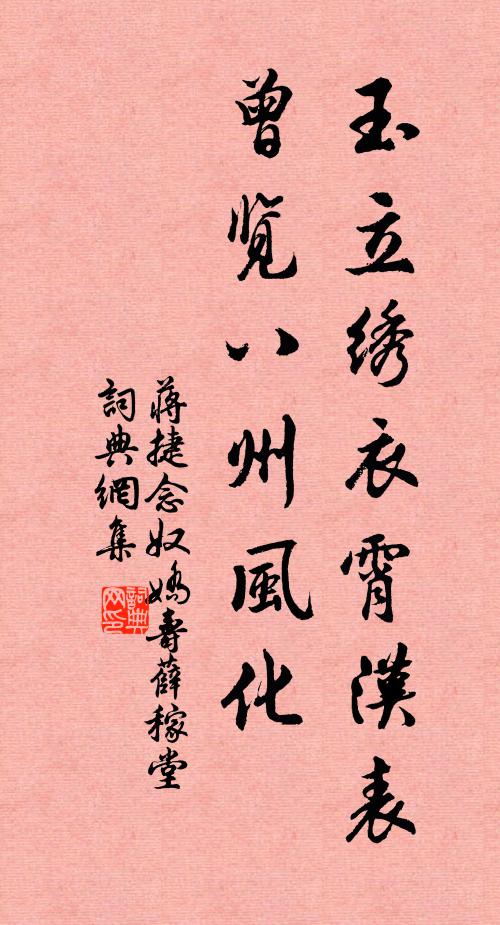 玉立绣衣霄漢表
曾览八州風化
蔣捷念奴嬌壽薛稼堂
詞典網集
詞典网印